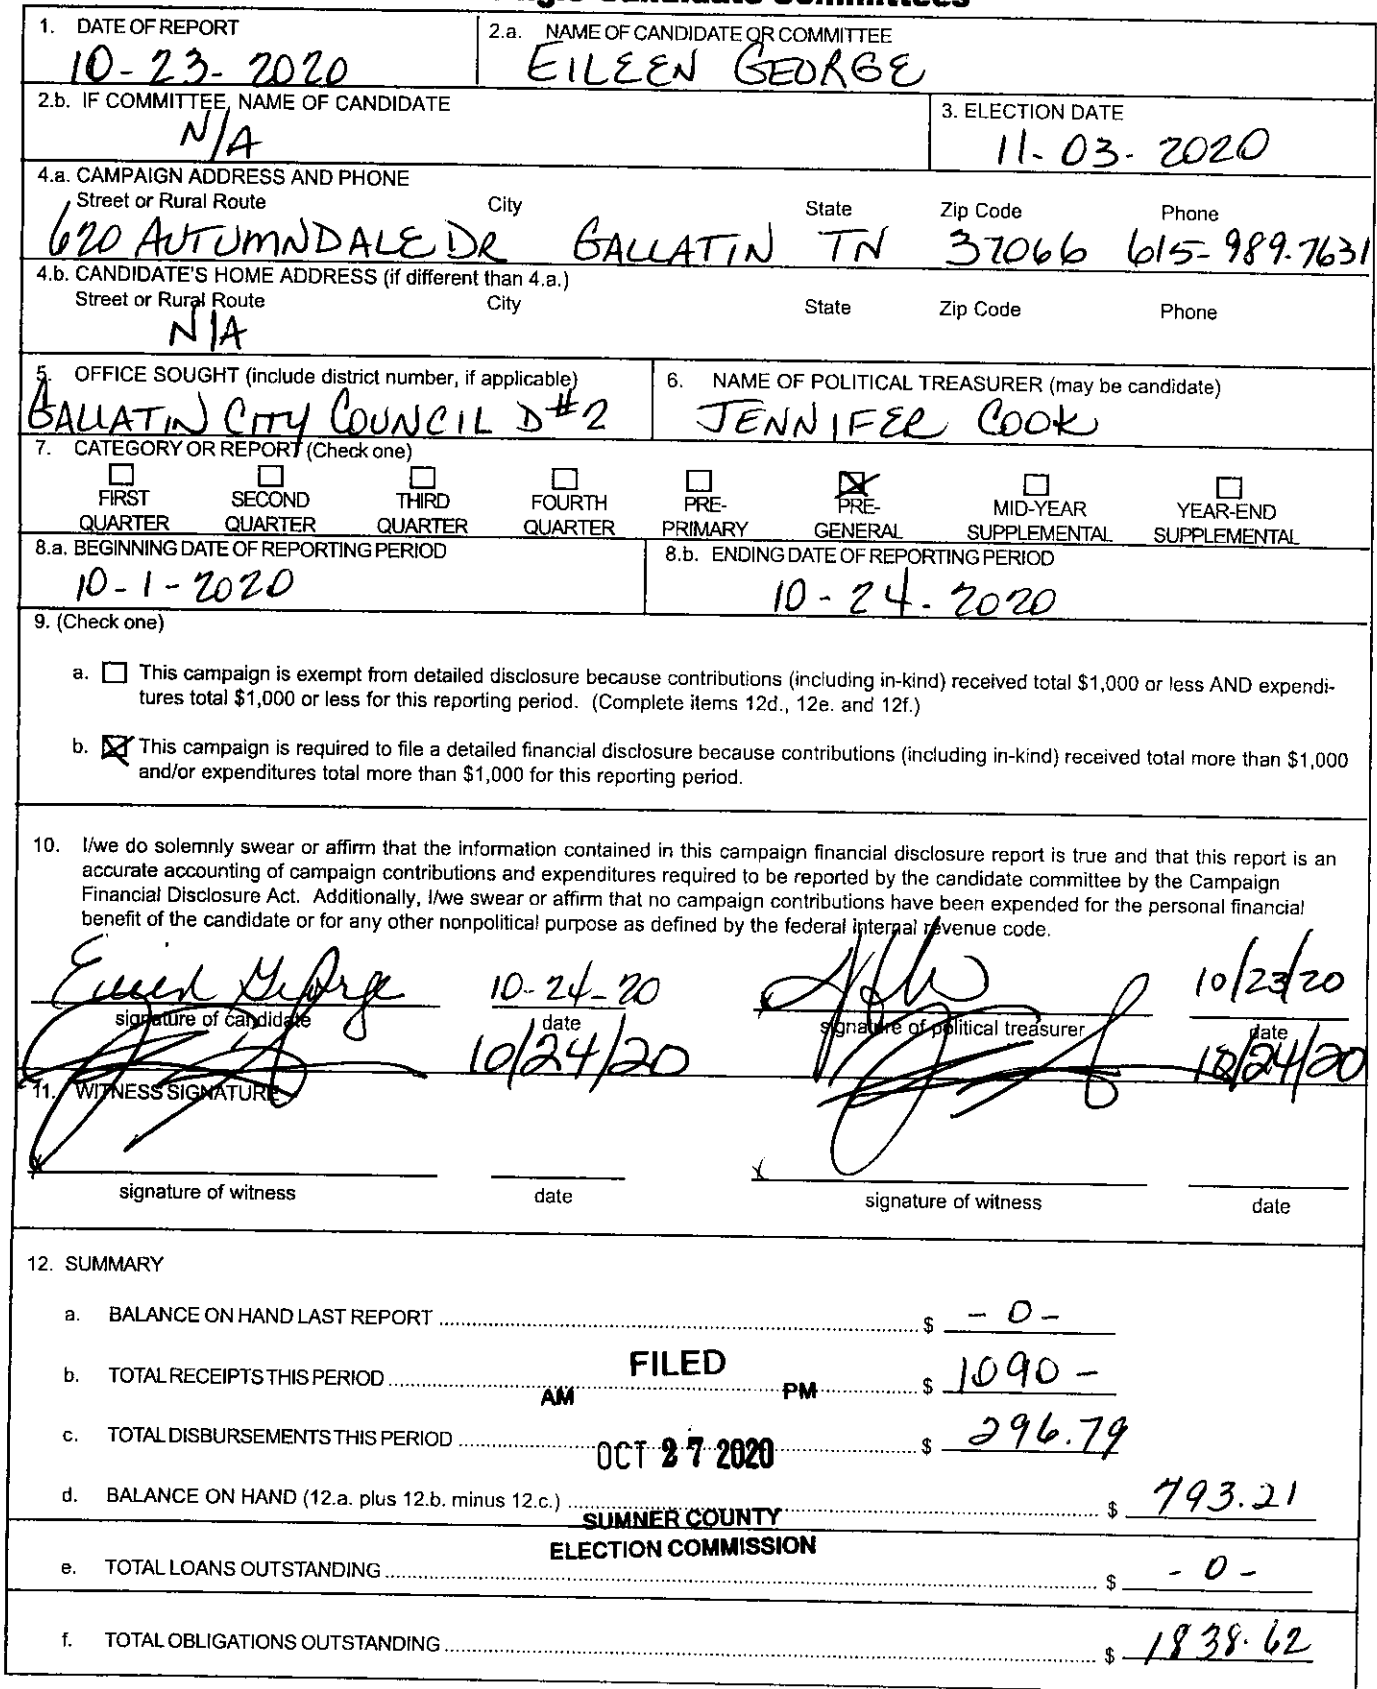 1. DATE OF REPORT
10-23-2020
2.a. NAME OF CANDIDATE OR COMMITTEE
EILEEN GEORGE
2.b. IF COMMITTEE, NAME OF CANDIDATE
N/A
3. ELECTION DATE
11-03-2020
4.a. CAMPAIGN ADDRESS AND PHONE
Street or Rural Route City State Zip Code Phone
620 AUTUMNDALE DR GALLATIN TN 37066 615-989.7631
4.b. CANDIDATE'S HOME ADDRESS (if different than 4.a.)
Street or Rural Route City State Zip Code Phone
N/A
5. OFFICE SOUGHT (include district number, if applicable)
GALLATIN CITY COUNCIL D#2
6. NAME OF POLITICAL TREASURER (may be candidate)
JENNIFER COOK
7. CATEGORY OR REPORT (Check one)
FIRST SECOND THIRD FOURTH PRE- PRE- MID-YEAR YEAR-END
QUARTER QUARTER QUARTER QUARTER PRIMARY GENERAL SUPPLEMENTAL SUPPLEMENTAL
8.a. BEGINNING DATE OF REPORTING PERIOD
10-1-2020
8.b. ENDING DATE OF REPORTING PERIOD
10-24-2020
9. (Check one)
a. This campaign is exempt from detailed disclosure because contributions (including in-kind) received total $1,000 or less AND expendi-
tures total $1,000 or less for this reporting period. (Complete items 12d., 12e. and 12f.)
b. This campaign is required to file a detailed financial disclosure because contributions (including in-kind) received total more than $1,000
and/or expenditures total more than $1,000 for this reporting period.
10. I/we do solemnly swear or affirm that the information contained in this campaign financial disclosure report is true and that this report is an
accurate accounting of campaign contributions and expenditures required to be reported by the candidate committee by the Campaign
Financial Disclosure Act. Additionally, I/we swear or affirm that no campaign contributions have been expended for the personal financial
benefit of the candidate or for any other nonpolitical purpose as defined by the federal internal revenue code.
Eileen George 10-24-20 10/23/20
signature of candidate date signature of political treasurer date
10/24/20 10/24/20
11. WITNESS SIGNATURE
signature of witness date signature of witness date
12. SUMMARY
a. BALANCE ON HAND LAST REPORT $ -0-
b. TOTAL RECEIPTS THIS PERIOD $ 1090-
FILED
AM PM
c. TOTAL DISBURSEMENTS THIS PERIOD $ 296.79
OCT 27 2020
d. BALANCE ON HAND (12.a. plus 12.b. minus 12.c.) $ 793.21
SUMNER COUNTY
ELECTION COMMISSION
e. TOTAL LOANS OUTSTANDING $ -0-
f. TOTAL OBLIGATIONS OUTSTANDING $ 1838.62